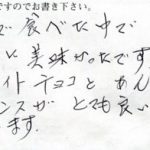 ですのでお書き下さい。
で食べた中で
い美味かったです
イトチョコとあん
ンスがとても良い
ます。